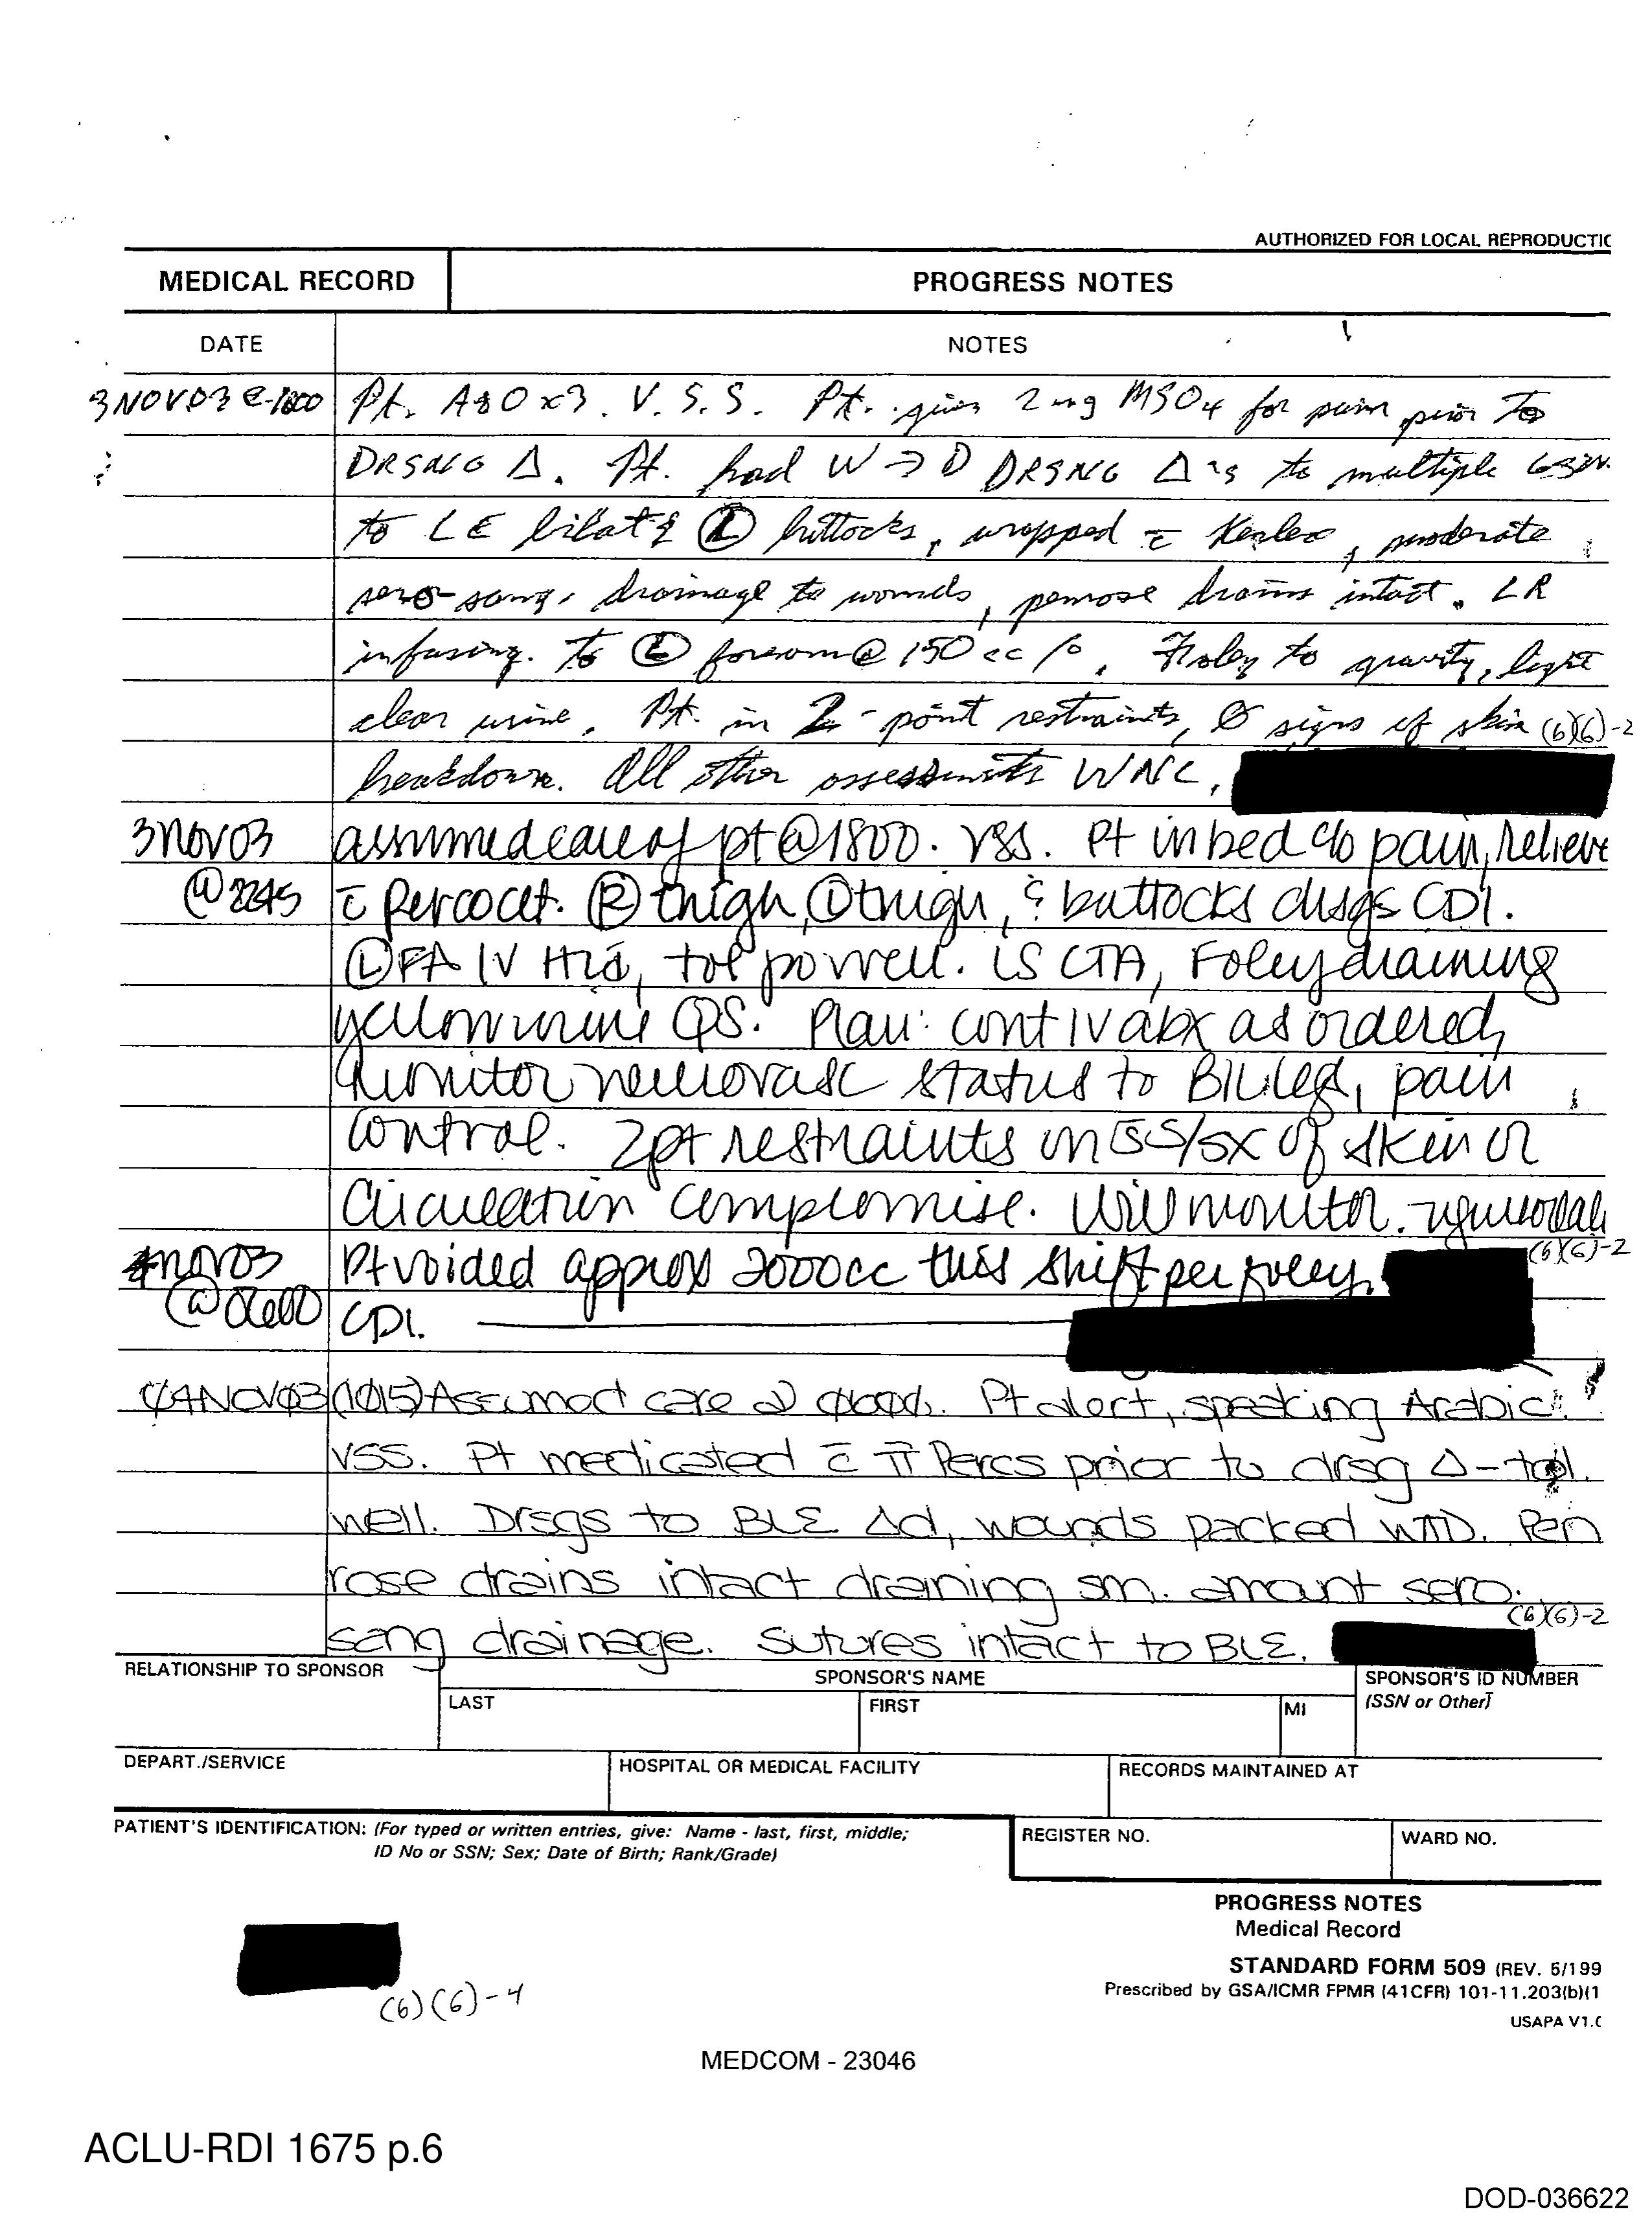 AUTHORIZED FOR LOCAL REPRODUCTIC
MEDICAL RECORD PROGRESS NOTES
DATE NOTES
3NOV03 @ 1800 Pt. A&O x3. V.S.S. Pt. given 2mg MSO4 for pain prior to
DRSNG Δ. Pt. had W→D DRSNG Δ's to multiple
to LE bilat & Ⓛ buttocks, wrapped c̄ Kerlex, moderate
sero-sang. drainage to wounds, penrose drains intact. LR
infusing to Ⓛ forearm @ 150 cc/°. Foley to gravity, light
clear urine. Pt. in 2-point restraints, Ø signs of skin (6)(6)-2
breakdown. All other assessments WNL.
3NOV03 assummed care of pt @ 1800. VSS. Pt in bed c/o pain, relieve
@ 2245 c̄ percocet. Ⓡ thigh, Ⓛ thigh, & buttocks drsgs CDI.
ⓁFA IV , tol po well. LS CTA, Foley draining
yellow urine QS. Plan: cont IV abx as ordered,
monitor neurovasc status to Bil leg, pain
control. 2pt restraints on s̄ S/SX of skin or
circulation compromise. Will monitor.
4NOV03 Pt voided approx 2000cc this shift per foley. (6)(6)-2
@ 0600 CDI.
04NOV03 (1015) Assumed care @ . Pt alert, speaking Arabic.
VSS. Pt medicated c̄ ii Percs prior to drsg Δ - tol.
well. Drsgs to BLE Δd, wounds packed WTD. Pen
rose drains intact draining sm. amount sero.
sang drainage. Sutures intact to BLE. (6)(6)-2
RELATIONSHIP TO SPONSOR SPONSOR'S NAME SPONSOR'S ID NUMBER
LAST FIRST MI (SSN or Other)
DEPART./SERVICE HOSPITAL OR MEDICAL FACILITY RECORDS MAINTAINED AT
PATIENT'S IDENTIFICATION: (For typed or written entries, give: Name - last, first, middle; REGISTER NO. WARD NO.
ID No or SSN; Sex; Date of Birth; Rank/Grade)
PROGRESS NOTES
Medical Record
STANDARD FORM 509 (REV. 5/199
Prescribed by GSA/ICMR FPMR (41CFR) 101-11.203(b)(1
USAPA V1.0
(6)(6)-4
MEDCOM - 23046
ACLU-RDI 1675 p.6
DOD-036622